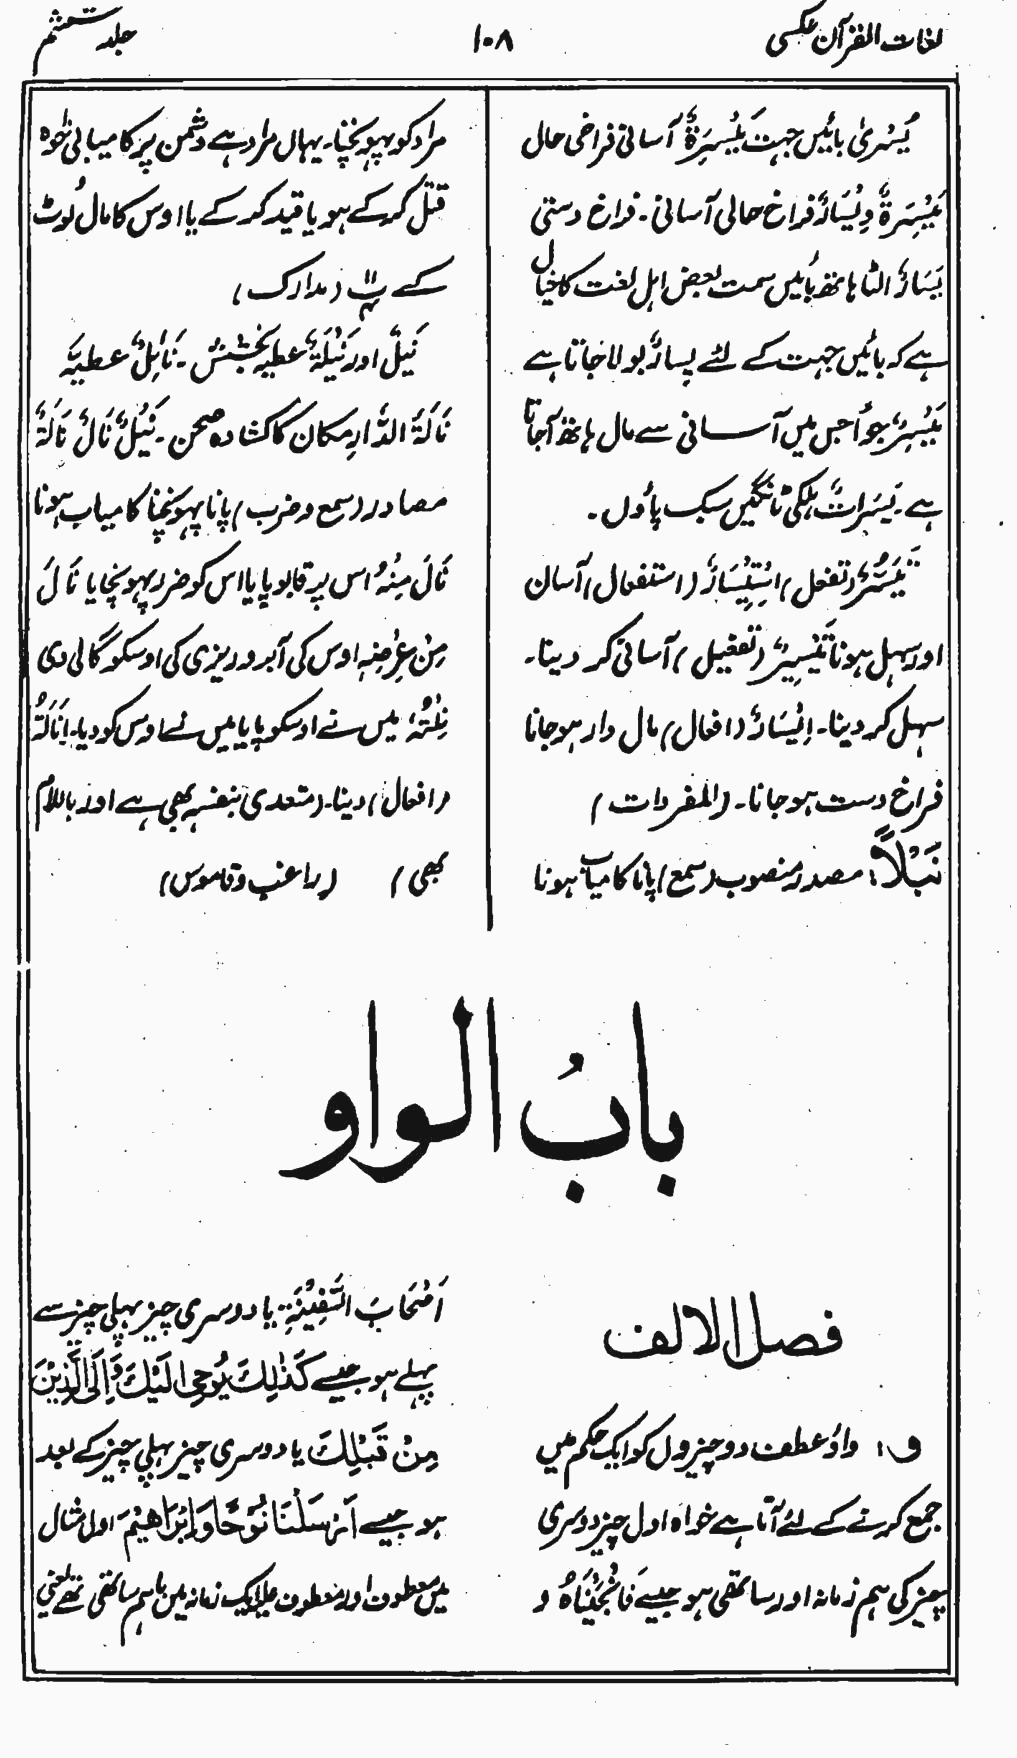 لغات القرآن عکسی
۱۰۸
جلد ششم
یُسْرٰی بائیں جہت مَیْسَرَۃٌ آسانی فراخی حال
مَیْسِرَۃٌ وِیَسَارٌ فراخ حالی آسانی ۔ فراخ دستی
یَسَارٌ الٹا ہاتھ بائیں سمت بعض اہل لغت کا خیال
ہے کہ بائیں جہت کے لئے یسارٌ بولا جاتا ہے
مَیْسِرٌ جوُا جس میں آسانی سے مال ہاتھ آجاتا
ہے ۔ یَسَرَاتٌ ہلکی ٹانگیں سبک پاؤں ۔
تَیَسُّرٌ (تفعل) اسْتِیْسَارٌ (استفعال) آسان
اور سہل ہونا تَیْسِیْرٌ (تفعیل) آسانی کر دینا ۔
سہل کر دینا ۔ اِیْسَارٌ (افعال) مال دار ہوجانا
فراخ دست ہو جانا ۔ (المفردات)
نَیْلًا: مصدر منصوب (سمع) پانا کامیاب ہونا
مراد کو پہونچنا ۔ یہاں مراد ہے دشمن پر کامیابی خواہ
قتل کر کے ہو یا قید کر کے یا اوس کا مال لُوٹ
کے (مدارک)
نَیْلٌ اور نَیْلَۃٌ عطیہ بخشش ۔ نَائِلٌ عطیہ
نَالَۃُ الدَّارِ مکان کا کشادہ صحن ۔ نَیْلٌ نَالٌ نَالَۃٌ
مصادر (سمع و ضرب) پانا پہونچنا کامیاب ہونا
نَالَ مِنْہُ اس پر قابو پایا اس کو ضرر پہونچایا نَالَ
مِنْ عِرْضِہٖ اوس کی آبرو ریزی کی اوسکو گالی دی
نِلْتُہٗ میں نے اوسکو پایا میں نے اوس کو دیا ۔ اِنَالَۃٌ
(افعال) دینا ۔ (متعدی بنفسہ بھی ہے اور باللام
بھی) (راغب و قاموس)
بابُ الواو
فصل الالف
و: واؤ عطف دو چیزوں کو ایک حکم میں
جمع کرنے کے لئے آتا ہے خواہ اول چیز دوسری
چیز کی ہم زمانہ اور ساتھی ہو جیسے فَانْجَیْنَاہُ وَ
اَصْحَابَ السَّفِیْنَۃِ یا دوسری چیز پہلی چیز سے
پہلے ہو جیسے کَذٰلِکَ یُوْحِیْ اِلَیْکَ وَاِلَی الَّذِیْنَ
مِنْ قَبْلِکَ یا دوسری چیز پہلی چیز کے بعد
ہو جیسے اَرْسَلْنَا نُوْحًا وَاِبْرَاھِیْمَ اول مثال
میں معطوف اور معطوف علیہ ایک زمانہ میں باہم ساتھی تھے یعنی